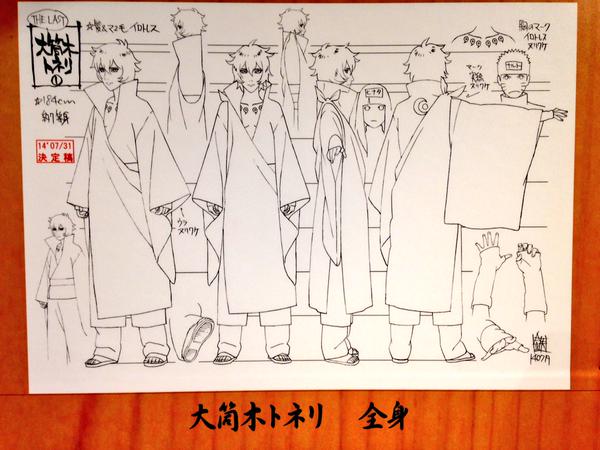 THE LAST
大筒木
トネリ
①
☆髪&マユ毛 イロトレス
胸のマーク
イロトレス
ヌリワケ
マーク
実線
ヌリワケ
ナルト
ヒナタ
約184cm
約7等身
14'07/31
決定稿
ウラ
ヌリワケ
140719
大筒木トネリ 全身